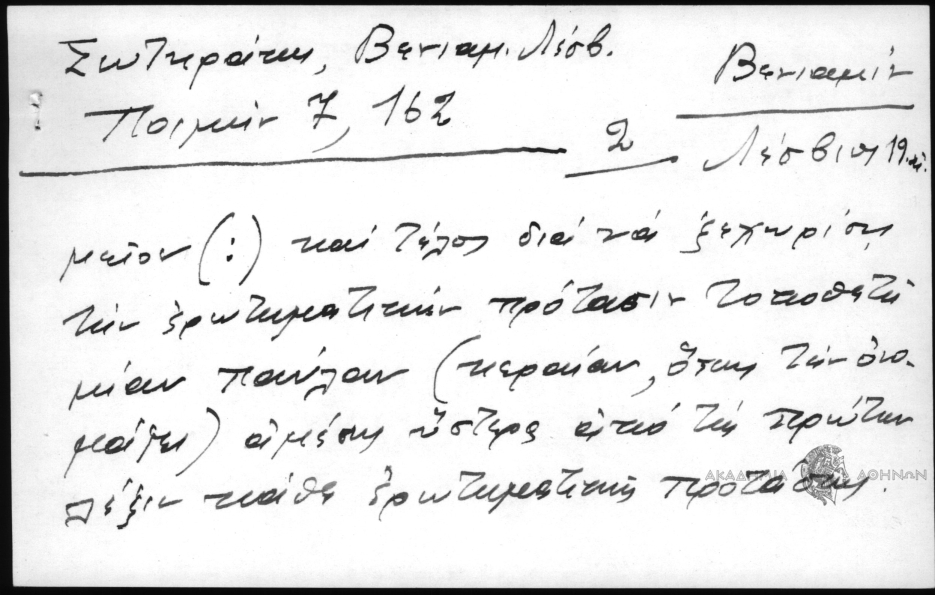 Σωτηράκης, Βενιαμ. Λέσβ.
Ποιμὴν 7, 162
2
Βενιαμὶν
Λέσβιος 19.
μεῖον (:) καὶ τέλος διὰ νὰ ξεχωρίσῃ
τὴν ἐρωτηματικὴν πρότασιν τοποθετῆ
μίαν παύλαν (κεραίαν, ὅπως τὴν ὀνο-
μάζει) ἀμέσως ὕστερα ἀπὸ τὴ πρώτην
λέξιν κάθε ἐρωτηματικῆς προτάσεως.
ΑΚΑΔΗΜΙΑ ΑΘΗΝΩΝ